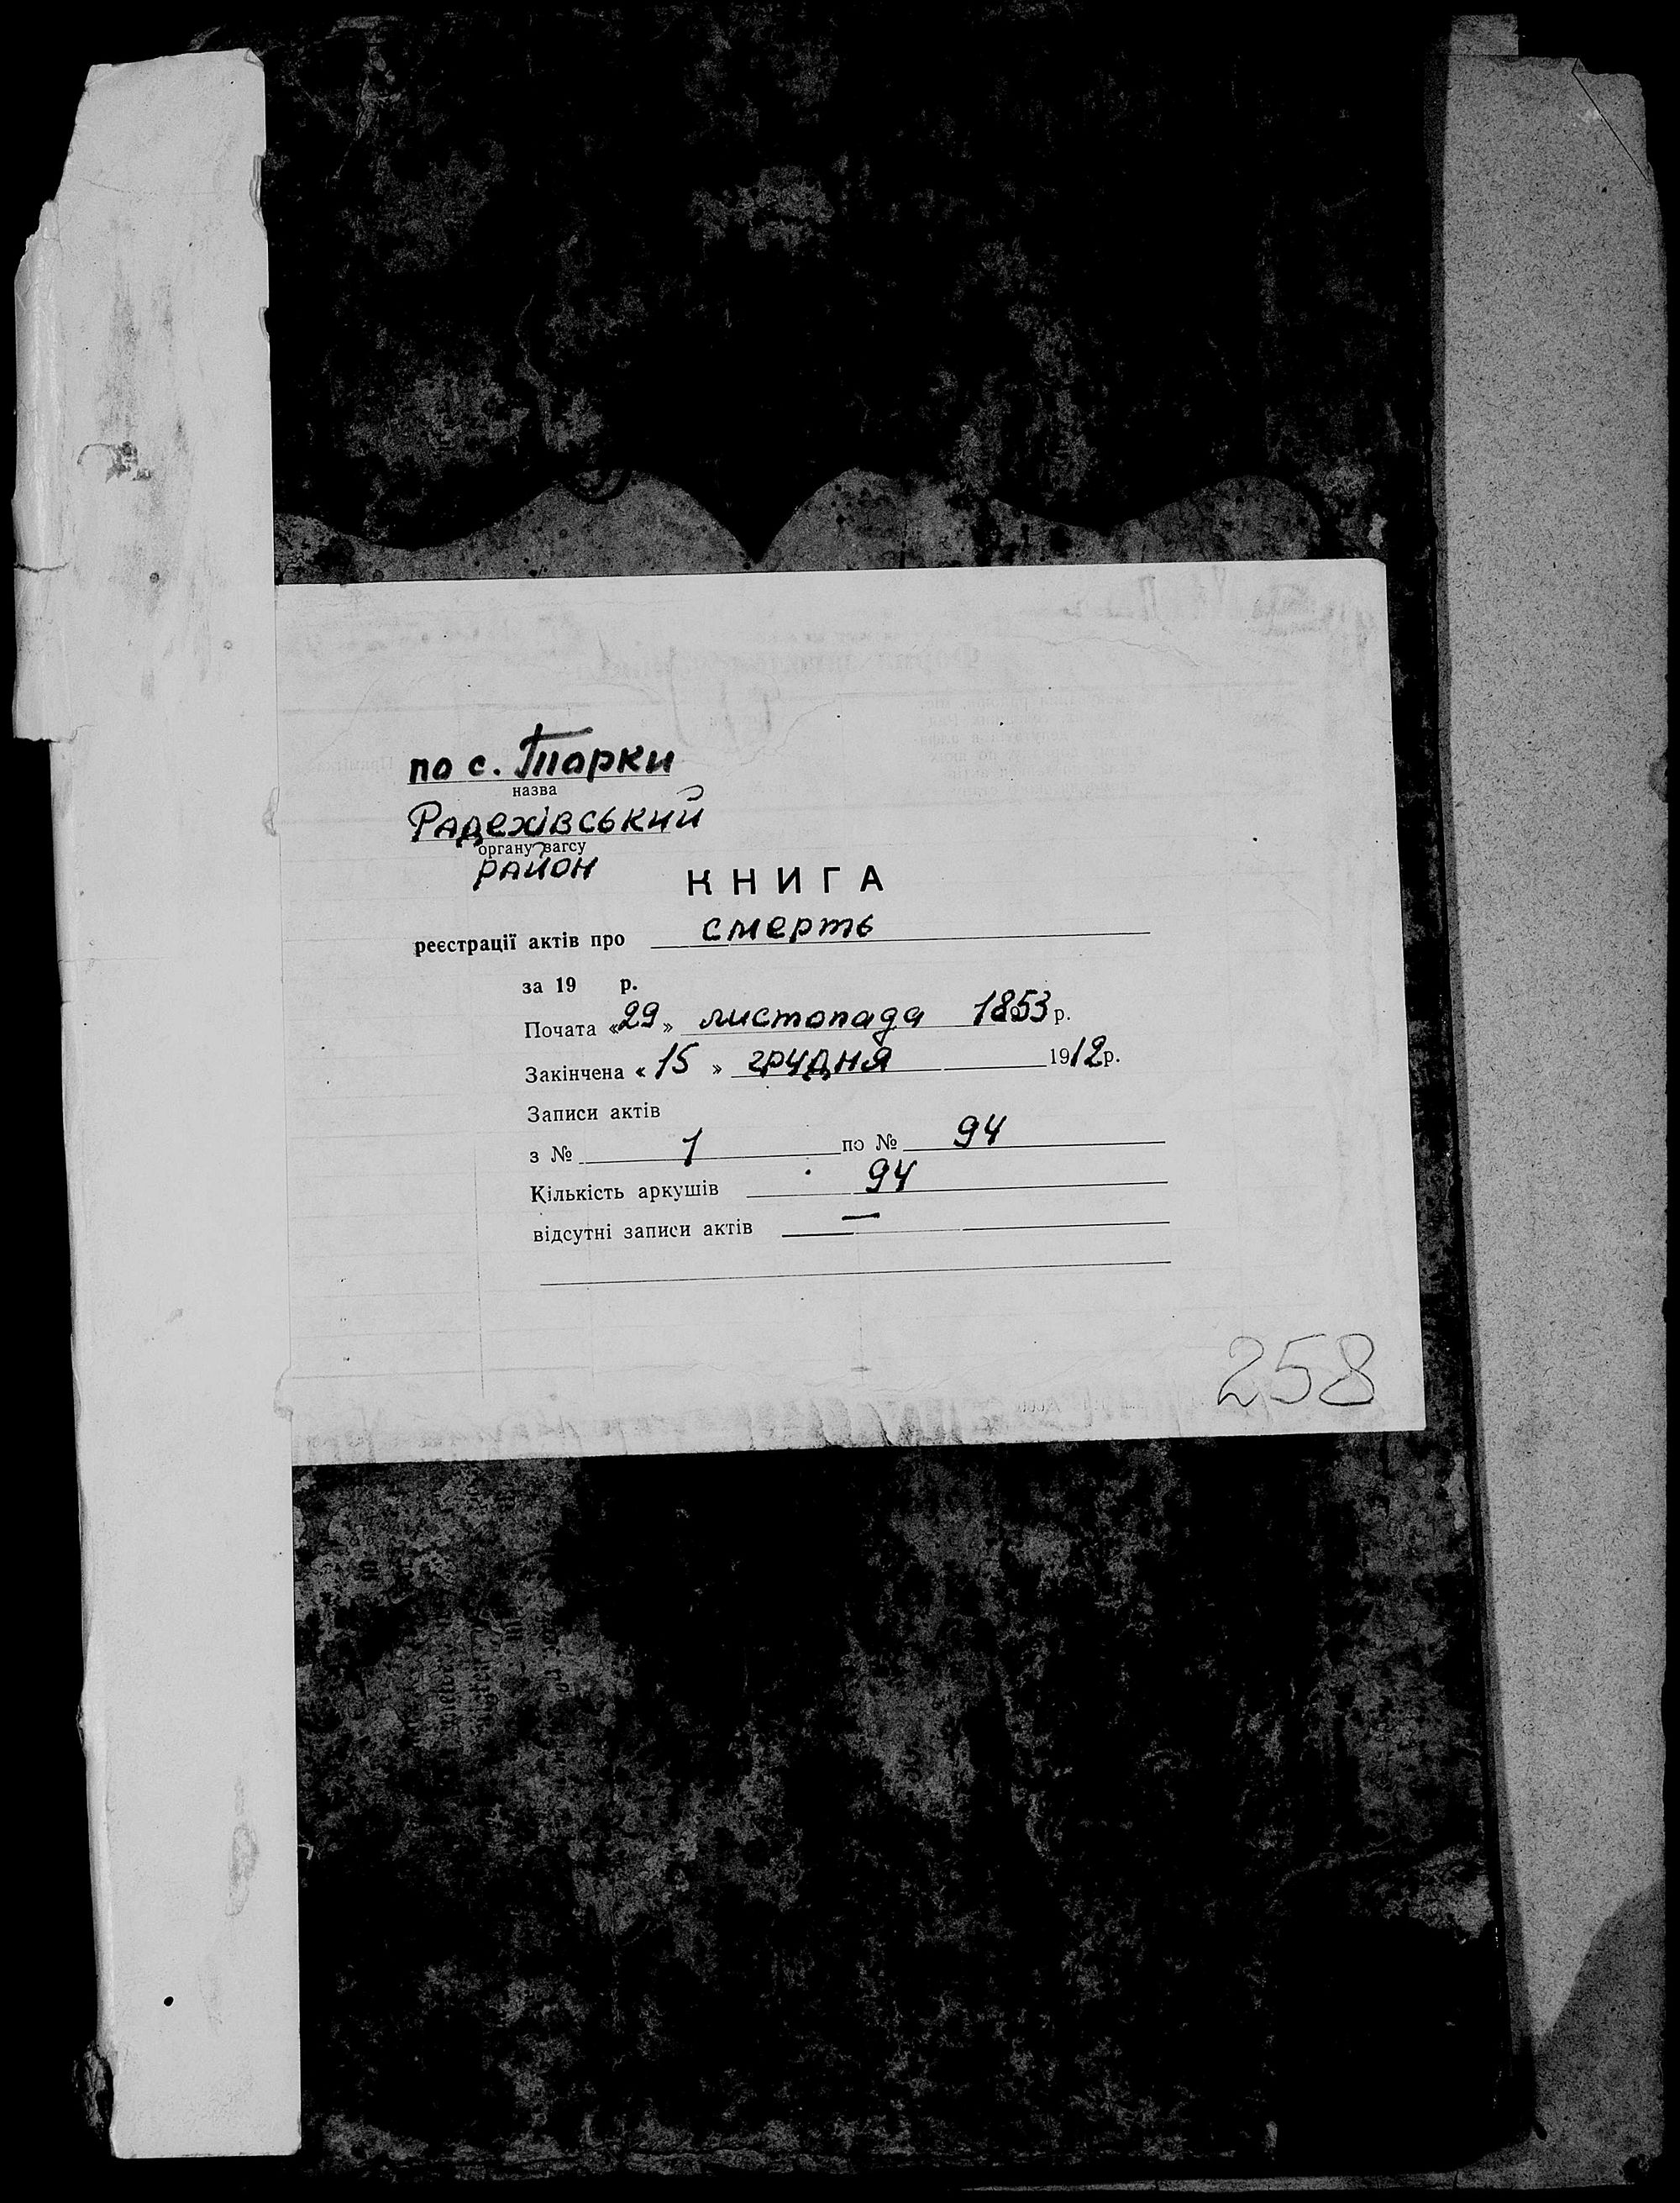 по с. Торки
назва
Радехівський
органу загсу
район
КНИГА
реєстрації актів про смерть
за 19 р.
Почата «29» листопада 1853 р.
Закінчена «15» грудня 1912 р.
Записи актів
з № 1 по № 94
Кількість аркушів 94
відсутні записи актів —
258